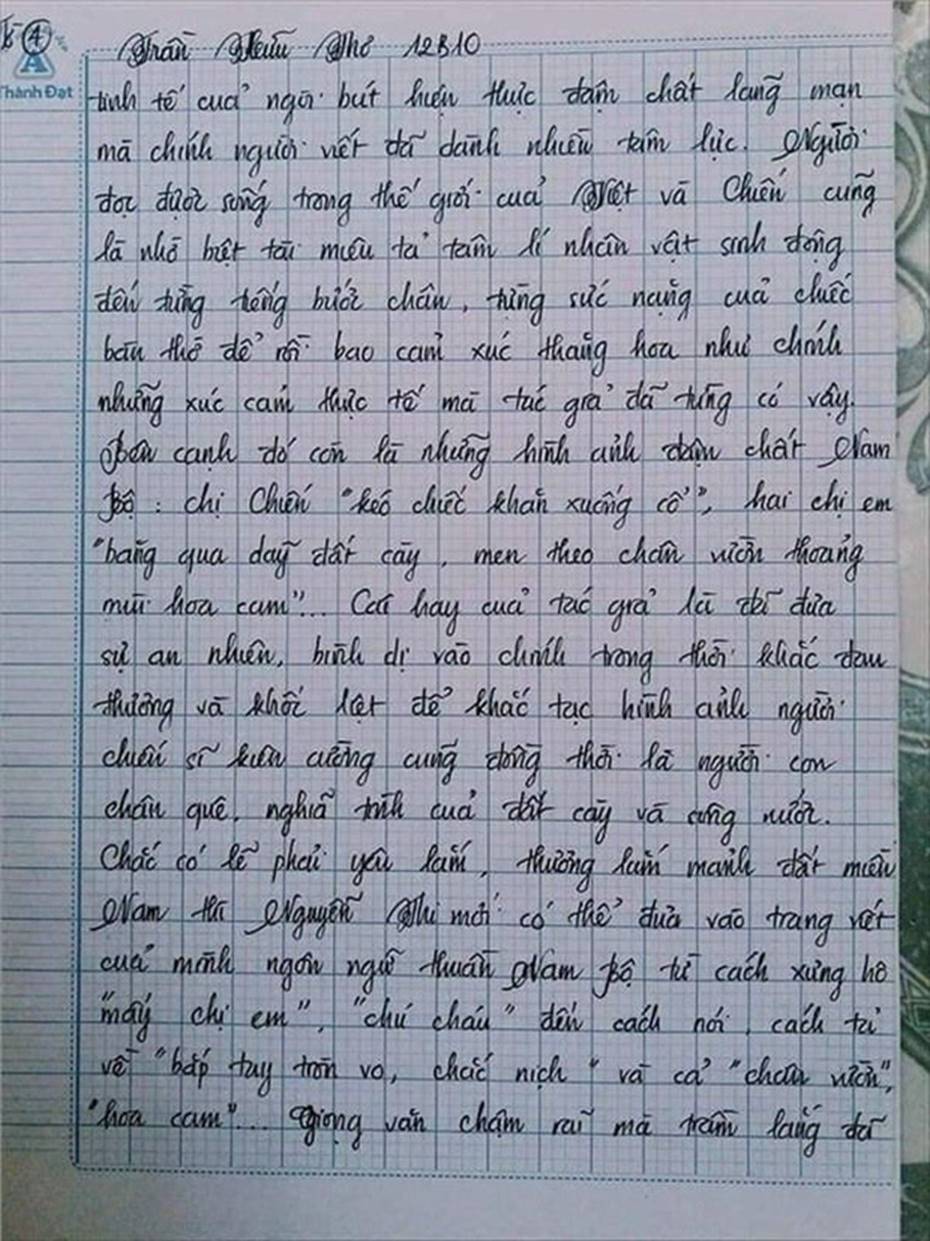 ④
Thành Đạt
Trần Hữu Thơ 12B10
tinh tế của ngòi bút hiện thực đậm chất lãng mạn
mà chính người viết đã dành nhiều tâm lực. Người
đọc được sống trong thế giới của Việt và Chiến cũng
là nhờ biệt tài miêu tả tâm lí nhân vật sinh động
đến từng tiếng bước chân, từng sức nặng của chiếc
bàn thờ để rồi bao cảm xúc thăng hoa như chính
những xúc cảm thực tế mà tác giả đã từng có vậy.
Bên cạnh đó còn là những hình ảnh đậm chất Nam
Bộ : chị Chiến "kéo chiếc khăn xuống cổ", hai chị em
"băng qua dãy đất cày, men theo chân vườn thoảng
mùi hoa cam"... Cái hay của tác giả là đã đưa
sự an nhiên, bình dị vào chính trong thời khắc đau
thương và khốc liệt để khắc tạc hình ảnh người
chiến sĩ kiên cường cũng đồng thời là người con
chân quê, nghĩa tình của đất cày và sông nước.
Chắc có lẽ phải yêu lắm, thương lắm mảnh đất miền
Nam thì Nguyễn Thi mới có thể đưa vào trang viết
của mình ngôn ngữ thuần Nam Bộ từ cách xưng hô
"mấy chị em", "chú cháu" đến cách nói, cách tả
về "bắp tay tròn vo, chắc nịch" và cả "chân vườn",
"hoa cam"... Giọng văn chậm rãi mà trầm lắng đã